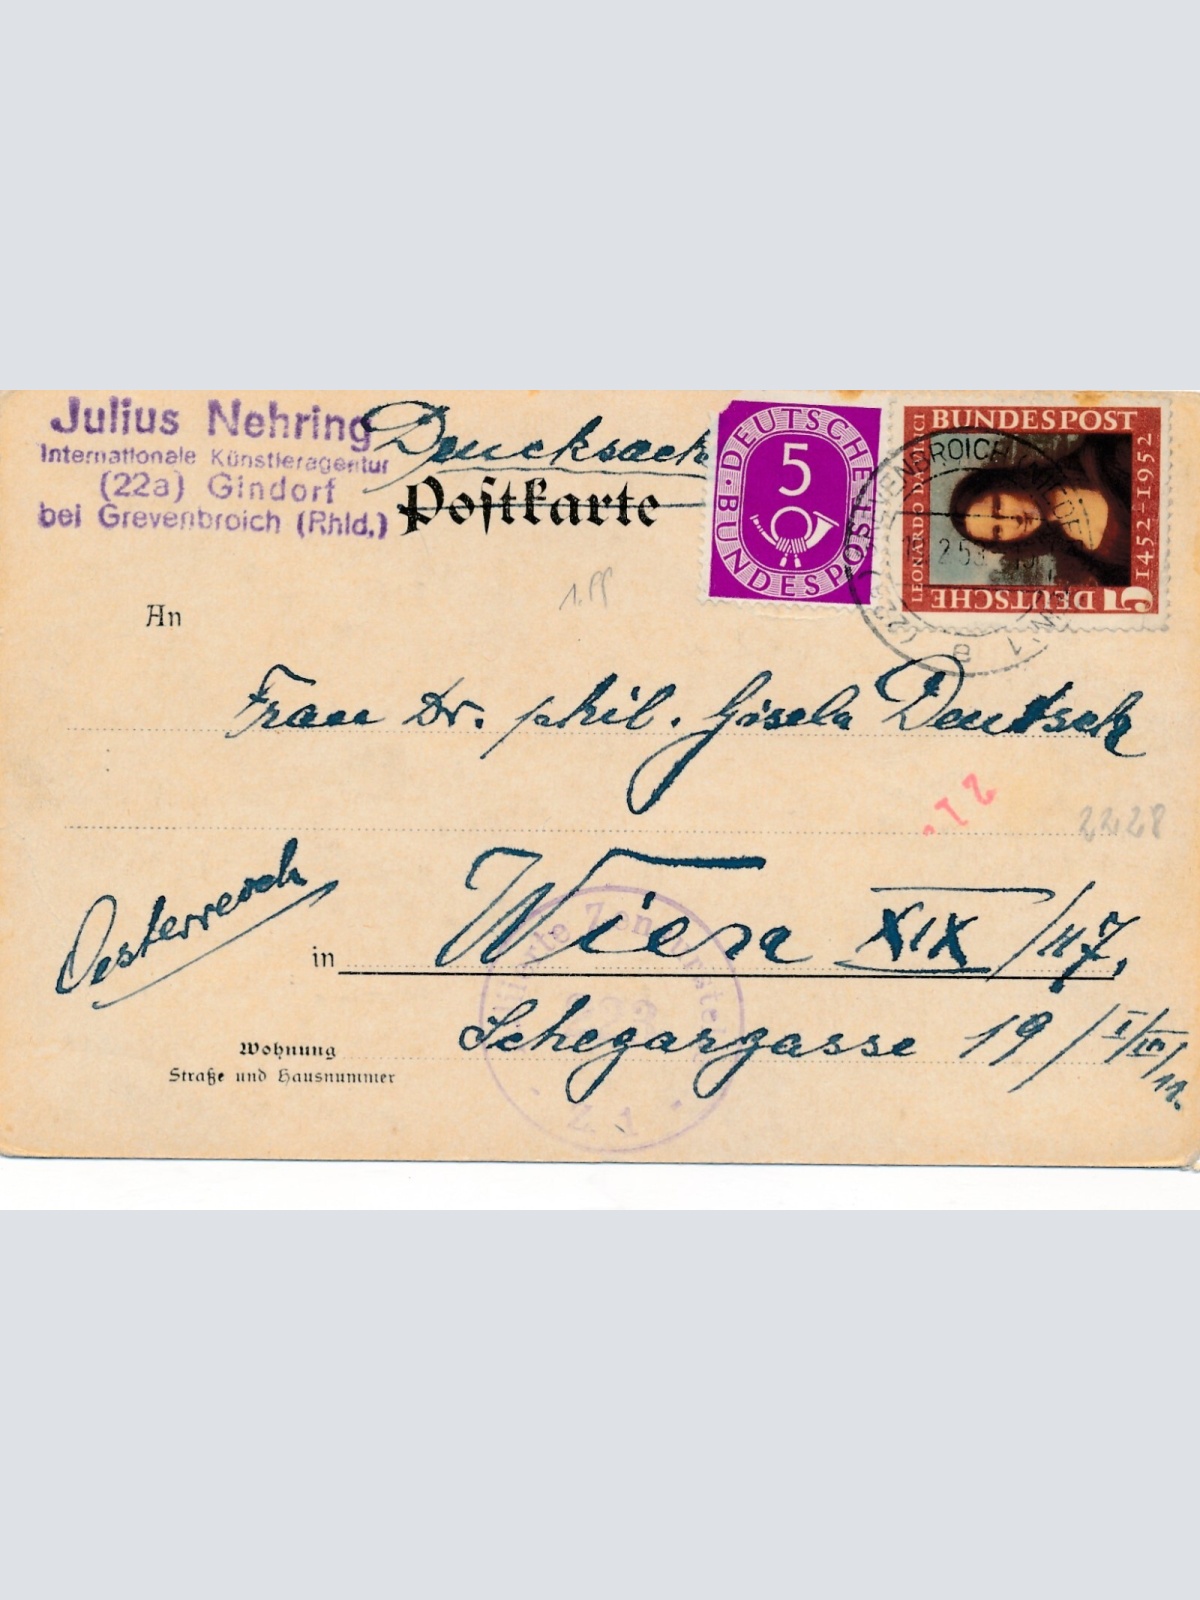 Julius Nehring
Internationale Künstleragentur
(22a) Gindorf
bei Grevenbroich (Rhld.)
Drucksache
Postkarte
DEUTSCHE BUNDESPOST
5
BUNDESPOST
LEONARDO DA VINCI
1452-1952
5 DEUTSCHE
An
Frau Dr. phil. Gisela Deutsch
2228
Oesterreich
in Wien XIX/117,
Wohnung
Straße und Hausnummer
Schegargasse 19/I/III/11.